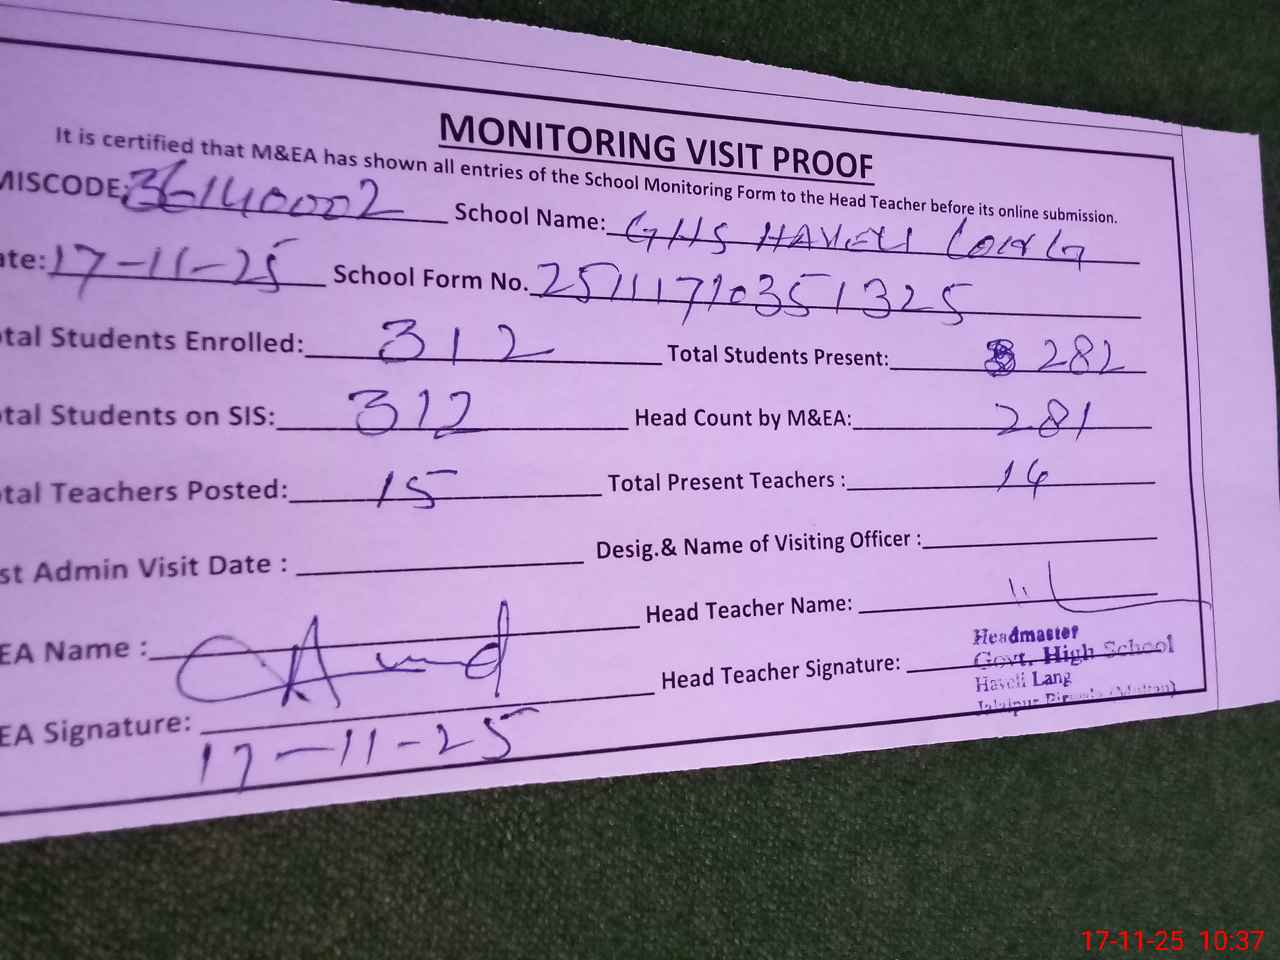 MONITORING VISIT PROOF
It is certified that M&EA has shown all entries of the School Monitoring Form to the Head Teacher before its online submission.
MISCODE: 36140002 School Name: GHS HAVELI
ate: 17-11-25 School Form No. 2511171035 1325
otal Students Enrolled: 312 Total Students Present: 282
otal Students on SIS: 312 Head Count by M&EA: 281
otal Teachers Posted: 15 Total Present Teachers : 14
st Admin Visit Date : Desig.& Name of Visiting Officer :
EA Name : Head Teacher Name:
EA Signature: Head Teacher Signature:
17-11-25
Headmaster
Govt. High School
Haveli Lang
17-11-25 10:37